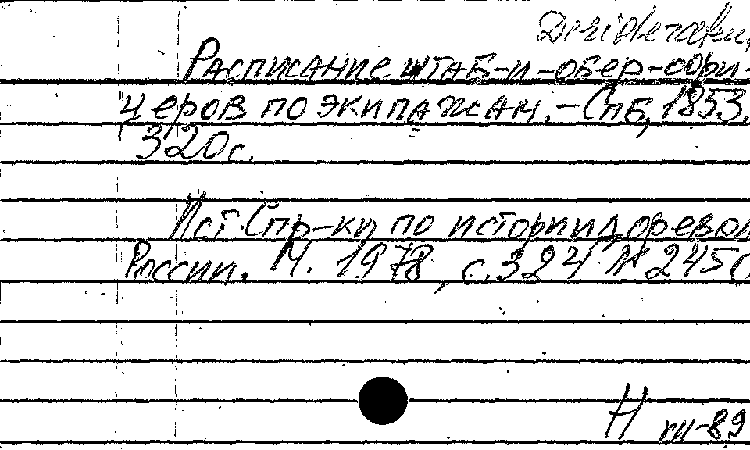 Desiderata
Расписание штаб-и-обер-офи-
церов по экипажам. - Спб, 1853.
320 с.
Ист. Спр-ки по истории доревол
России. М. 1978, с. 324 № 2450
Н